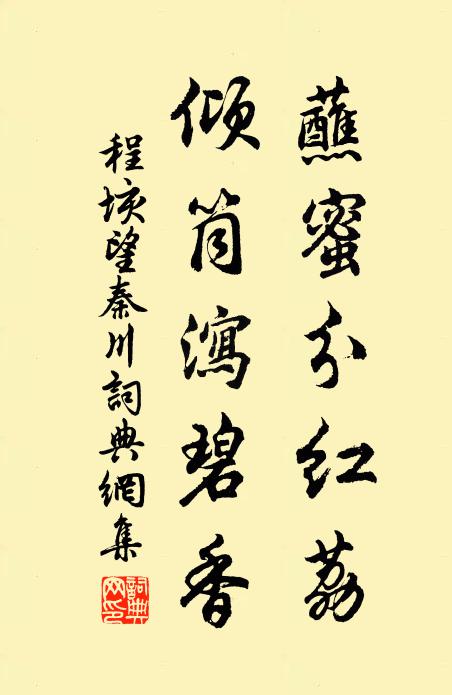 蘸蜜分红荔
倾筒瀉碧香
程垓望秦川詞典網集
詞典网印